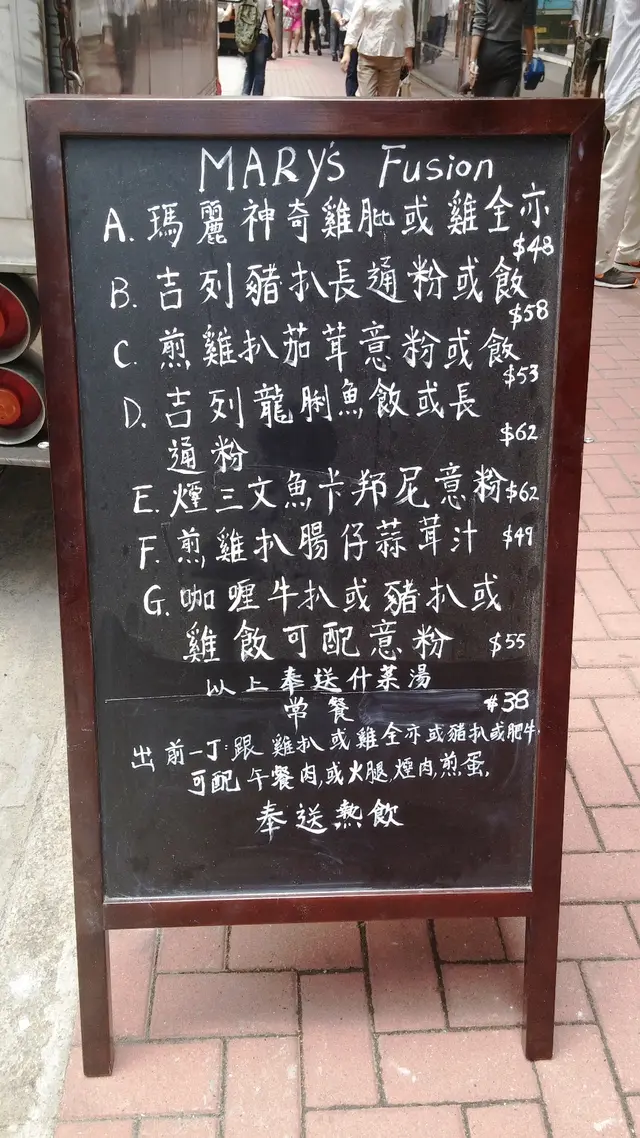 MARY'S Fusion
A. 瑪麗神奇雞肶或雞全亦
$48
B. 吉列豬扒長通粉或飯
$58
C. 煎雞扒茄茸意粉或飯
$53
D. 吉列龍脷魚飯或長
$62
通粉
E. 煙三文魚卡邦尼意粉 $62
F. 煎雞扒腸仔蒜茸汁 $49
G. 咖喱牛扒或豬扒或
雞飯可配意粉 $55
以上奉送什菜湯
常餐 $38
出前一丁:跟雞扒或雞全亦或豬扒或肥牛
可配午餐肉,或火腿,煙肉,煎蛋,
奉送熱飲